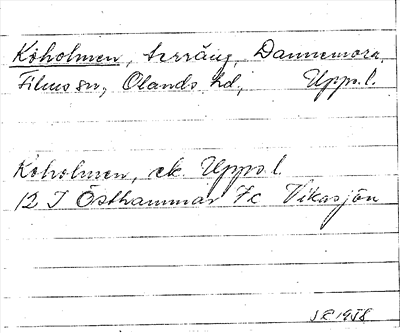 Koholmen, terräng, Dannemora,
Films sn, Olands hd, Upps.l.
Koholmen, ek. Upps.l.
12 I Östhammar 7c Vikasjön
1958